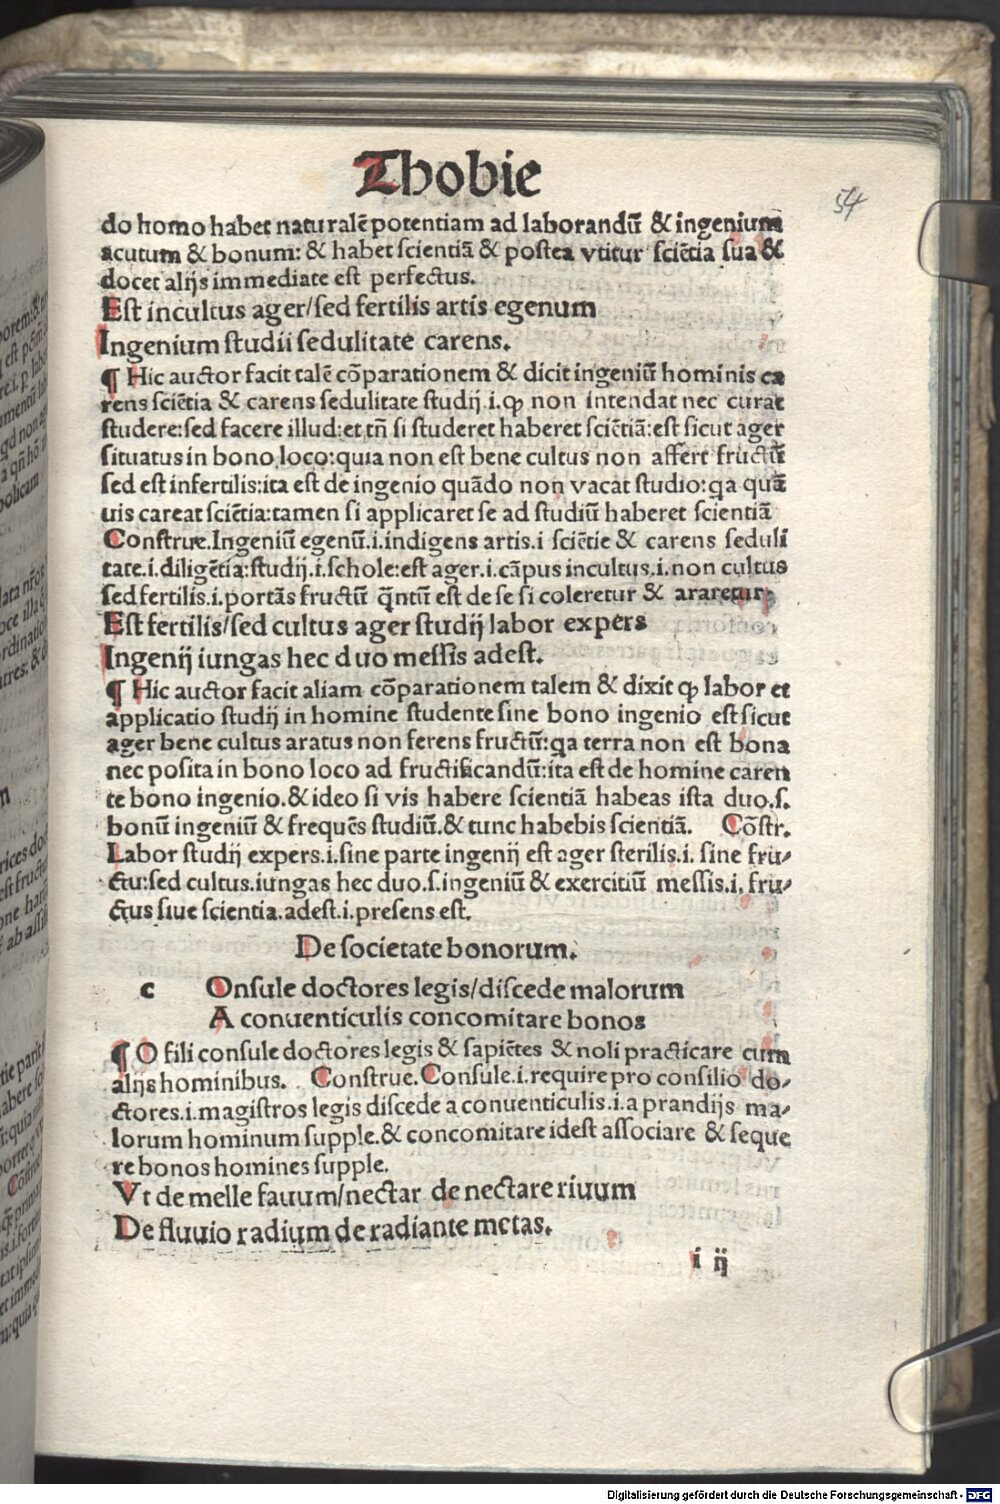 Thobie
54
do homo habet naturalē potentiam ad laborandū & ingenium
acutum & bonum: & habet scientiā & postea vtitur sciētia sua &
docet alijs immediate est perfectus.
Est incultus ager/sed fertilis artis egenum
Ingenium studii sedulitate carens.
¶ Hic auctor facit talē cōparationem & dicit ingeniū hominis ca
rens sciētia & carens sedulitate studij .i. ꝙ non intendat nec curat
studere:sed facere illud:et tñ si studeret haberet sciētiā:est sicut ager
situatus in bono loco:quia non est bene cultus non affert fructū
sed est infertilis:ita est de ingenio quādo non vacat studio:qa quā
uis careat sciētia:tamen si applicaret se ad studiū haberet scientiā
Construe.Ingeniū egenū.i.indigens artis.i sciētie & carens seduli
tate.i.diligētia:studij.i.schole:est ager.i.cāpus incultus.i.non cultus
sed fertilis.i.portās fructū q̄ntū est de se si coleretur & araretur:
Est fertilis/sed cultus ager studij labor expers
Ingenij iungas hec duo messis adest.
¶ Hic auctor facit aliam cōparationem talem & dixit ꝙ labor et
applicatio studij in homine studente sine bono ingenio est sicut
ager bene cultus aratus non ferens fructū:qa terra non est bona
nec posita in bono loco ad fructificandū:ita est de homine caren
te bono ingenio.& ideo si vis habere scientiā habeas ista duo.s.
bonū ingeniū & frequēs studiū.& tunc habebis scientiā. Cōstr.
Labor studij expers.i.sine parte ingenij est ager sterilis.i. sine fru/
ctu:sed cultus.iungas hec duo.s.ingeniū & exercitiū messis.i. fru/
ctus siue scientia.adest.i.presens est.
De societate bonorum.
c Onsule doctores legis/discede malorum
A conuenticulis concomitare bonos
¶ O fili consule doctores legis & sapiētes & noli practicare cum
alijs hominibus. Construe.Consule.i.require pro consilio do/
ctores.i.magistros legis discede a conuenticulis.i.a prandijs ma/
lorum hominum supple.& concomitare idest associare & seque
re bonos homines supple.
Vt de melle fauum/nectar de nectare riuum
De fluuio radium de radiante metas.
i ij
Digitalisierung gefördert durch die Deutsche Forschungsgemeinschaft - DFG